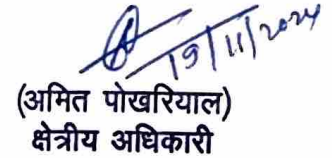 19/11/2024
(अमित पोखरियाल)
क्षेत्रीय अधिकारी